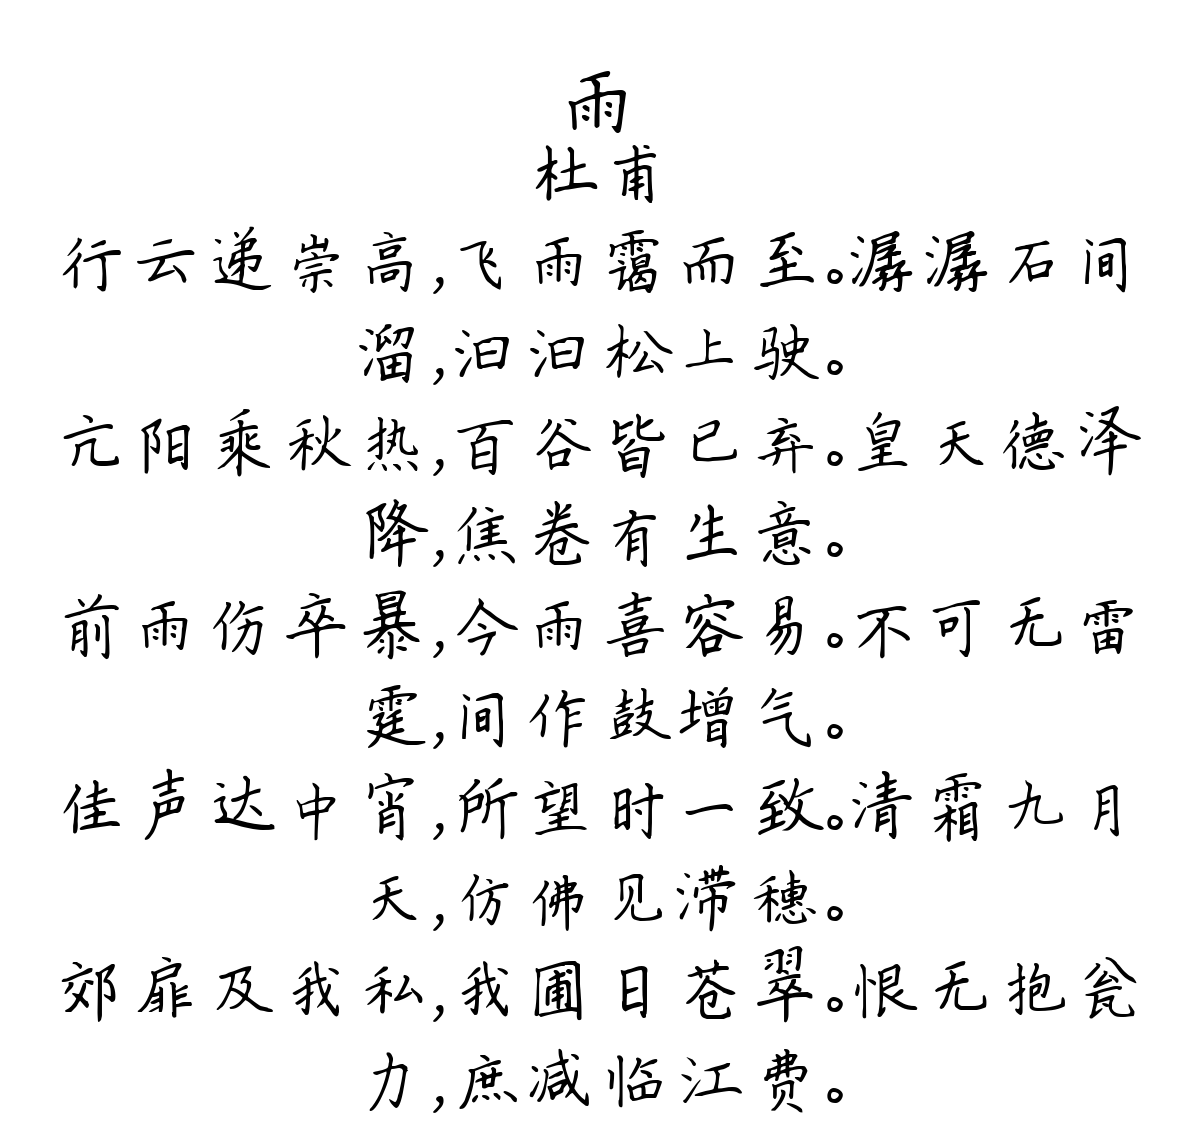 雨
杜甫
行云递崇高,飞雨霭而至。潺潺石间
溜,汩汩松上驶。
亢阳乘秋热,百谷皆已弃。皇天德泽
降,焦卷有生意。
前雨伤卒暴,今雨喜容易。不可无雷
霆,间作鼓增气。
佳声达中宵,所望时一致。清霜九月
天,仿佛见滞穗。
郊扉及我私,我圃日苍翠。恨无抱瓮
力,庶减临江费。